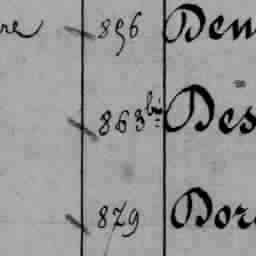 re 896 Den
863 bis Des
879 Dor